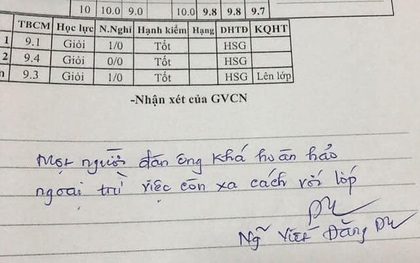 10 10.0 9.0 10.0 9.8 9.8 9.7
TBCM Học lực N.Nghỉ Hạnh kiểm Hạng DHTĐ KQHT
1 9.1 Giỏi 1/0 Tốt HSG
2 9.4 Giỏi 0/0 Tốt HSG
n 9.3 Giỏi 1/0 Tốt HSG Lên lớp
-Nhận xét của GVCN
Một người đàn ông khá hoàn hảo
ngoại trừ việc còn xa cách với lớp
Viết Đăng